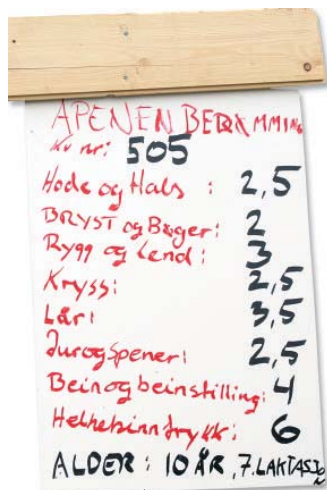 APENEN BEDØMMING
Kv nr: 505
Hode og Hals : 2,5
BRYST og Bøger: 2
Rygg og Lend : 3
Kryss: 2,5
Lår: 3,5
Jur og Spener: 2,5
Bein og beinstilling: 4
Helhetsinntrykk: 6
ALDER : 10 ÅR, 7. LAKTASJ